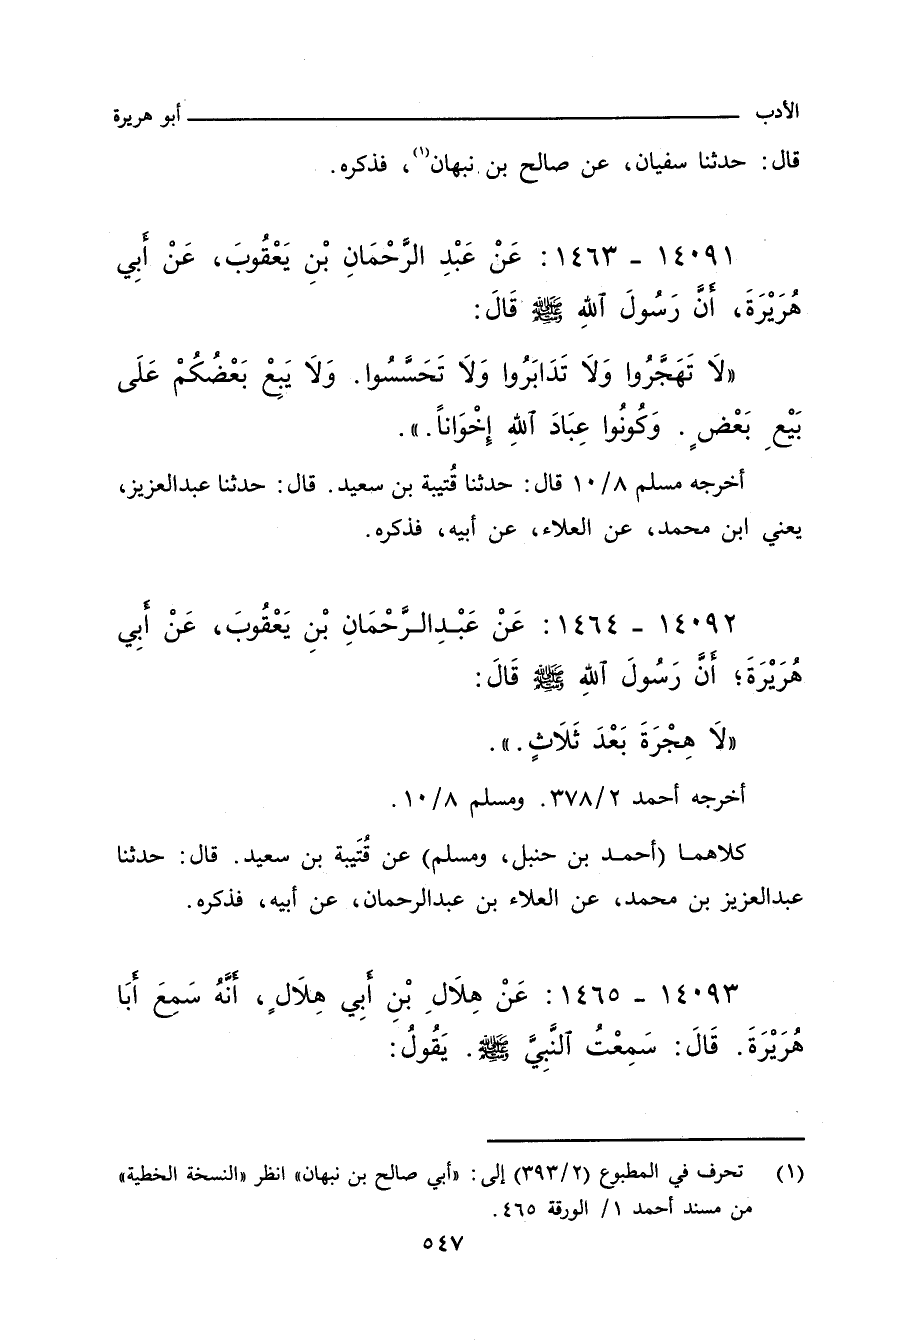 الأدب ــــــــــــــــــــ أبو هريرة
قال: حدثنا سفيان، عن صالح بن نبهان(١)، فذكره.
١٤٠٩١ ـ ١٤٦٣: عَنْ عَبْدِ الرَّحْمَانِ بْنِ يَعْقُوبَ، عَنْ أَبِي
هُرَيْرَةَ، أَنَّ رَسُولَ ٱللهِ ﷺ قَالَ:
«لَا تَهَجَّرُوا وَلَا تَدَابَرُوا وَلَا تَحَسَّسُوا. وَلَا يَبِعْ بَعْضُكُمْ عَلَى
بَيْعِ بَعْضٍ. وَكُونُوا عِبَادَ ٱللهِ إِخْوَاناً.».
أخرجه مسلم ١٠/٨ قال: حدثنا قُتيبة بن سعيد. قال: حدثنا عبدالعزيز،
يعني ابن محمد، عن العلاء، عن أبيه، فذكره.
١٤٠٩٢ ـ ١٤٦٤: عَنْ عَبْدِالرَّحْمَانِ بْنِ يَعْقُوبَ، عَنْ أَبِي
هُرَيْرَةَ؛ أَنَّ رَسُولَ ٱللهِ ﷺ قَالَ:
«لَا هِجْرَةَ بَعْدَ ثَلَاثٍ.».
أخرجه أحمد ٣٧٨/٢. ومسلم ١٠/٨.
كلاهما (أحمد بن حنبل، ومسلم) عن قُتَيبة بن سعيد. قال: حدثنا
عبدالعزيز بن محمد، عن العلاء بن عبدالرحمان، عن أبيه، فذكره.
١٤٠٩٣ ـ ١٤٦٥: عَنْ هِلَالِ بْنِ أَبِي هِلَالٍ، أَنَّهُ سَمِعَ أَبَا
هُرَيْرَةَ. قَالَ: سَمِعْتُ ٱلنَّبِيَّ ﷺ. يَقُولُ:
(١) تحرف في المطبوع (٣٩٣/٢) إلى: «أبي صالح بن نبهان» انظر «النسخة الخطية»
من مسند أحمد ١/ الورقة ٤٦٥.
٥٤٧